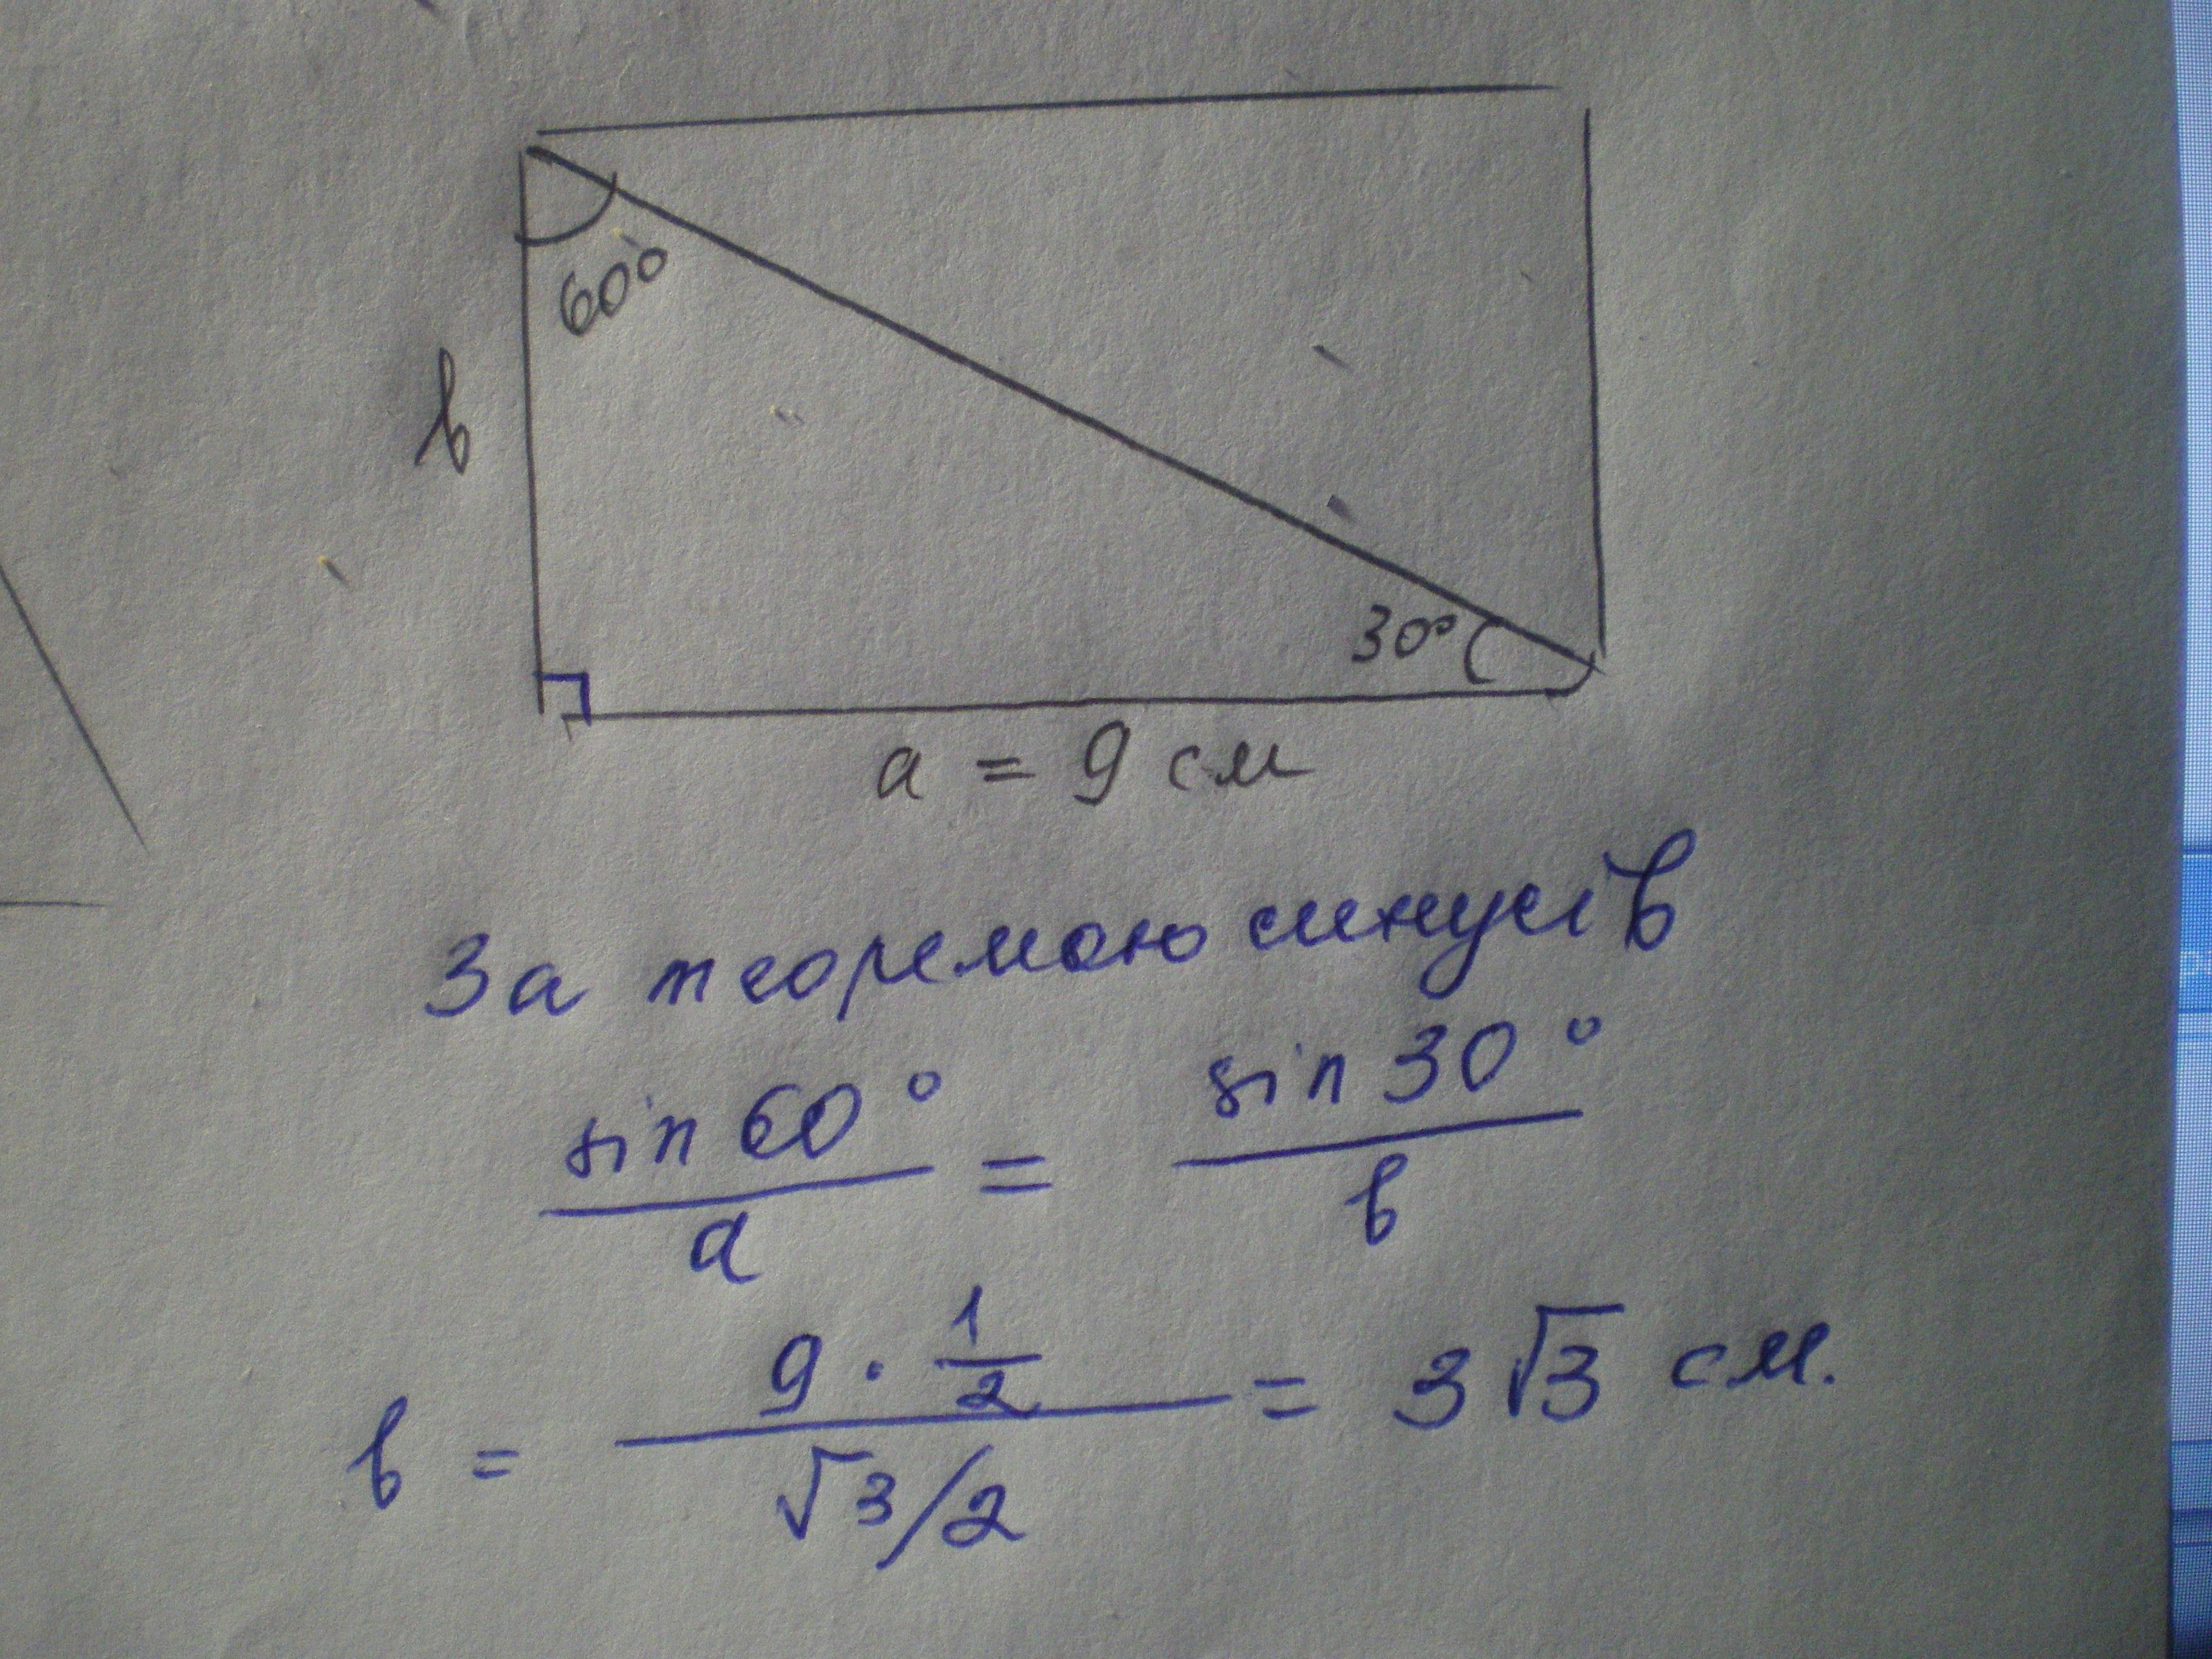 60°
в
30°
а = 9 см
За теоремою синусів
sin 60° / а = sin 30° / в
в = 9 · 1/2 / √3/2 = 3√3 см.